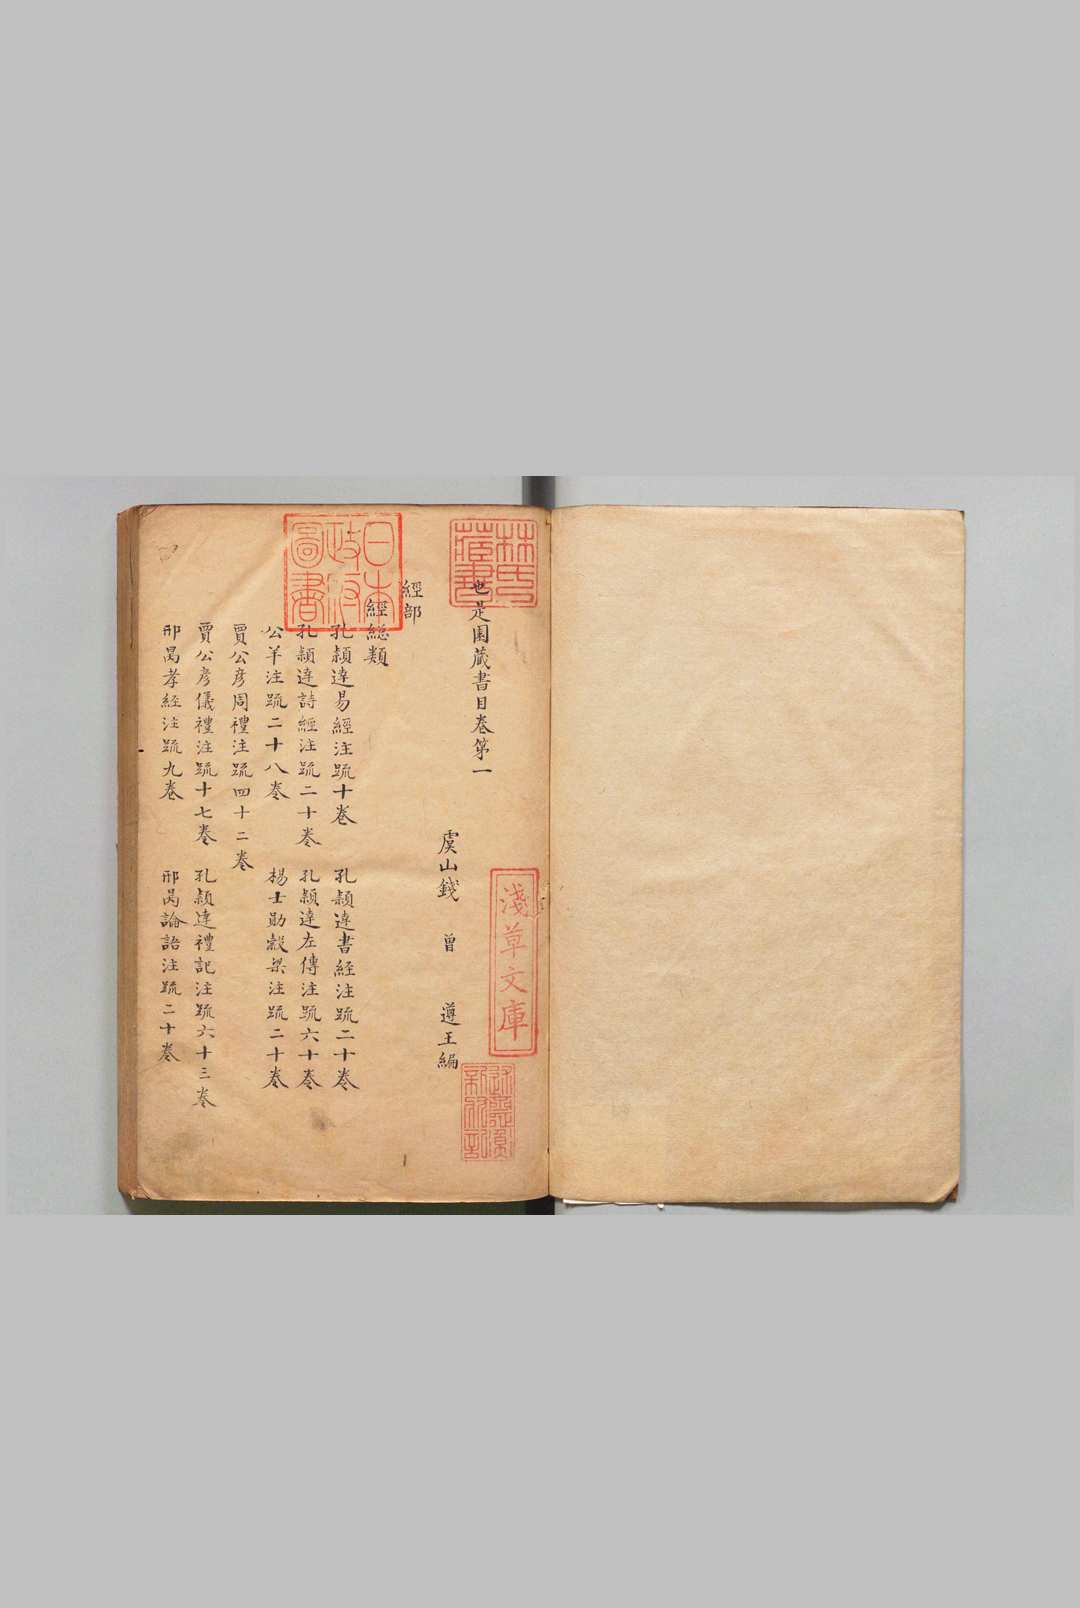 也是園藏書目卷第一
虞山錢 曾 遵王編
經部
經總類
孔穎達易經注疏十卷 孔穎達書經注疏二十卷
孔穎達詩經注疏二十卷 孔穎達左傳注疏六十卷
公羊注疏二十八卷 楊士勛穀梁注疏二十卷
賈公彥周禮注疏四十二卷
賈公彥儀禮注疏十七卷 孔穎達禮記注疏六十三卷
邢昺孝経注疏九卷 邢昺論語注疏二十卷
林氏藏書
日本政府圖書
淺草文庫